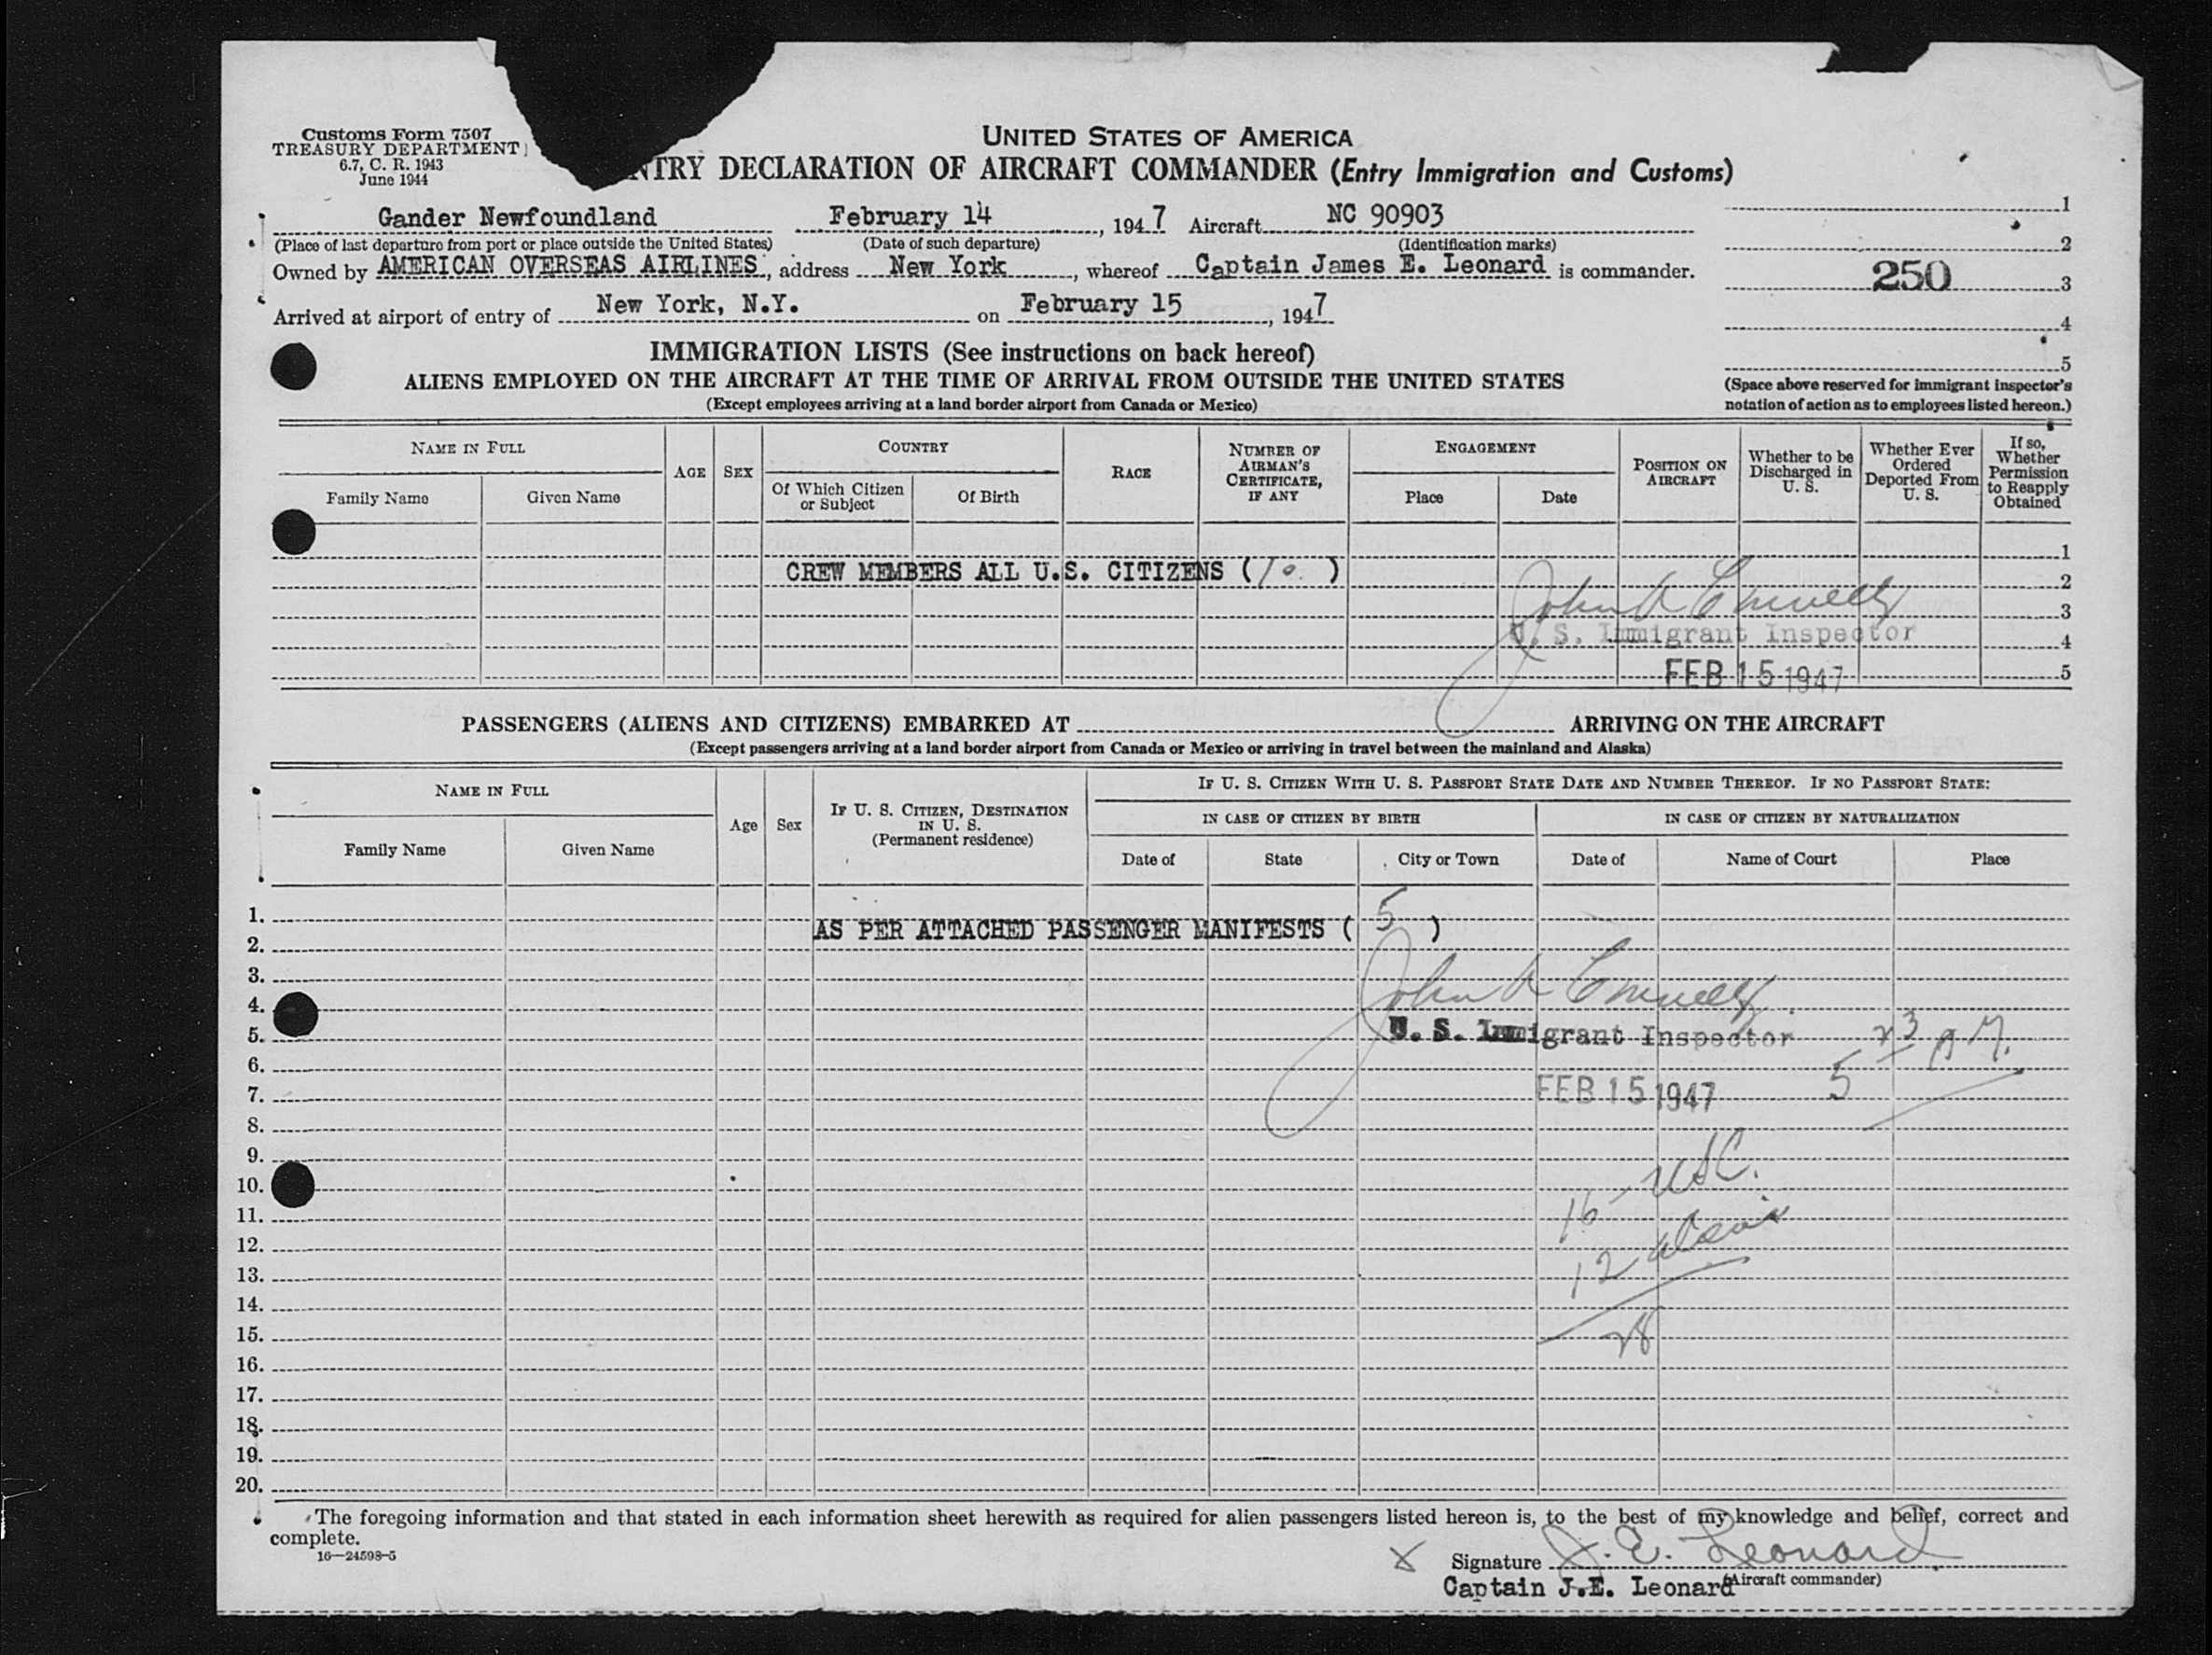 Customs Form 7507
TREASURY DEPARTMENT
6.7, C. R. 1943
June 1944
UNITED STATES OF AMERICA
NTRY DECLARATION OF AIRCRAFT COMMANDER (Entry Immigration and Customs)
Gander Newfoundland February 14, 1947 Aircraft NC 90903
(Place of last departure from port or place outside the United States) (Date of such departure) (Identification marks)
Owned by AMERICAN OVERSEAS AIRLINES, address New York, whereof Captain James E. Leonard is commander.
Arrived at airport of entry of New York, N.Y. on February 15, 1947
1
2
250 3
4
5
(Space above reserved for immigrant inspector's
notation of action as to employees listed hereon.)
IMMIGRATION LISTS (See instructions on back hereof)
ALIENS EMPLOYED ON THE AIRCRAFT AT THE TIME OF ARRIVAL FROM OUTSIDE THE UNITED STATES
(Except employees arriving at a land border airport from Canada or Mexico)
NAME IN FULL
Family Name
Given Name
AGE
SEX
COUNTRY
Of Which Citizen
or Subject
Of Birth
RACE
NUMBER OF
AIRMAN'S
CERTIFICATE,
IF ANY
ENGAGEMENT
Place
Date
POSITION ON
AIRCRAFT
Whether to be
Discharged in
U. S.
Whether Ever
Ordered
Deported From
U. S.
If so,
Whether
Permission
to Reapply
Obtained
1
CREW MEMBERS ALL U.S. CITIZENS (10) 2
John A Connelly 3
U. S. Immigrant Inspector 4
FEB 15 1947 5
PASSENGERS (ALIENS AND CITIZENS) EMBARKED AT ARRIVING ON THE AIRCRAFT
(Except passengers arriving at a land border airport from Canada or Mexico or arriving in travel between the mainland and Alaska)
NAME IN FULL
Family Name
Given Name
Age
Sex
IF U. S. CITIZEN, DESTINATION
IN U. S.
(Permanent residence)
IF U. S. CITIZEN WITH U. S. PASSPORT STATE DATE AND NUMBER THEREOF. IF NO PASSPORT STATE:
IN CASE OF CITIZEN BY BIRTH
IN CASE OF CITIZEN BY NATURALIZATION
Date of
State
City or Town
Date of
Name of Court
Place
1.
AS PER ATTACHED PASSENGER MANIFESTS ( 5 )
2.
3.
4. John A Connelly
5. U. S. Immigrant Inspector
6. 5 23 PM.
7. FEB 15 1947
8.
9.
10. 16 - USC.
11.
12. 12 aliens
13.
14.
15. 28
16.
17.
18.
19.
20.
The foregoing information and that stated in each information sheet herewith as required for alien passengers listed hereon is, to the best of my knowledge and belief, correct and
complete.
16—24598-5
X Signature J. E. Leonard
Captain J.E. Leonard (Aircraft commander)